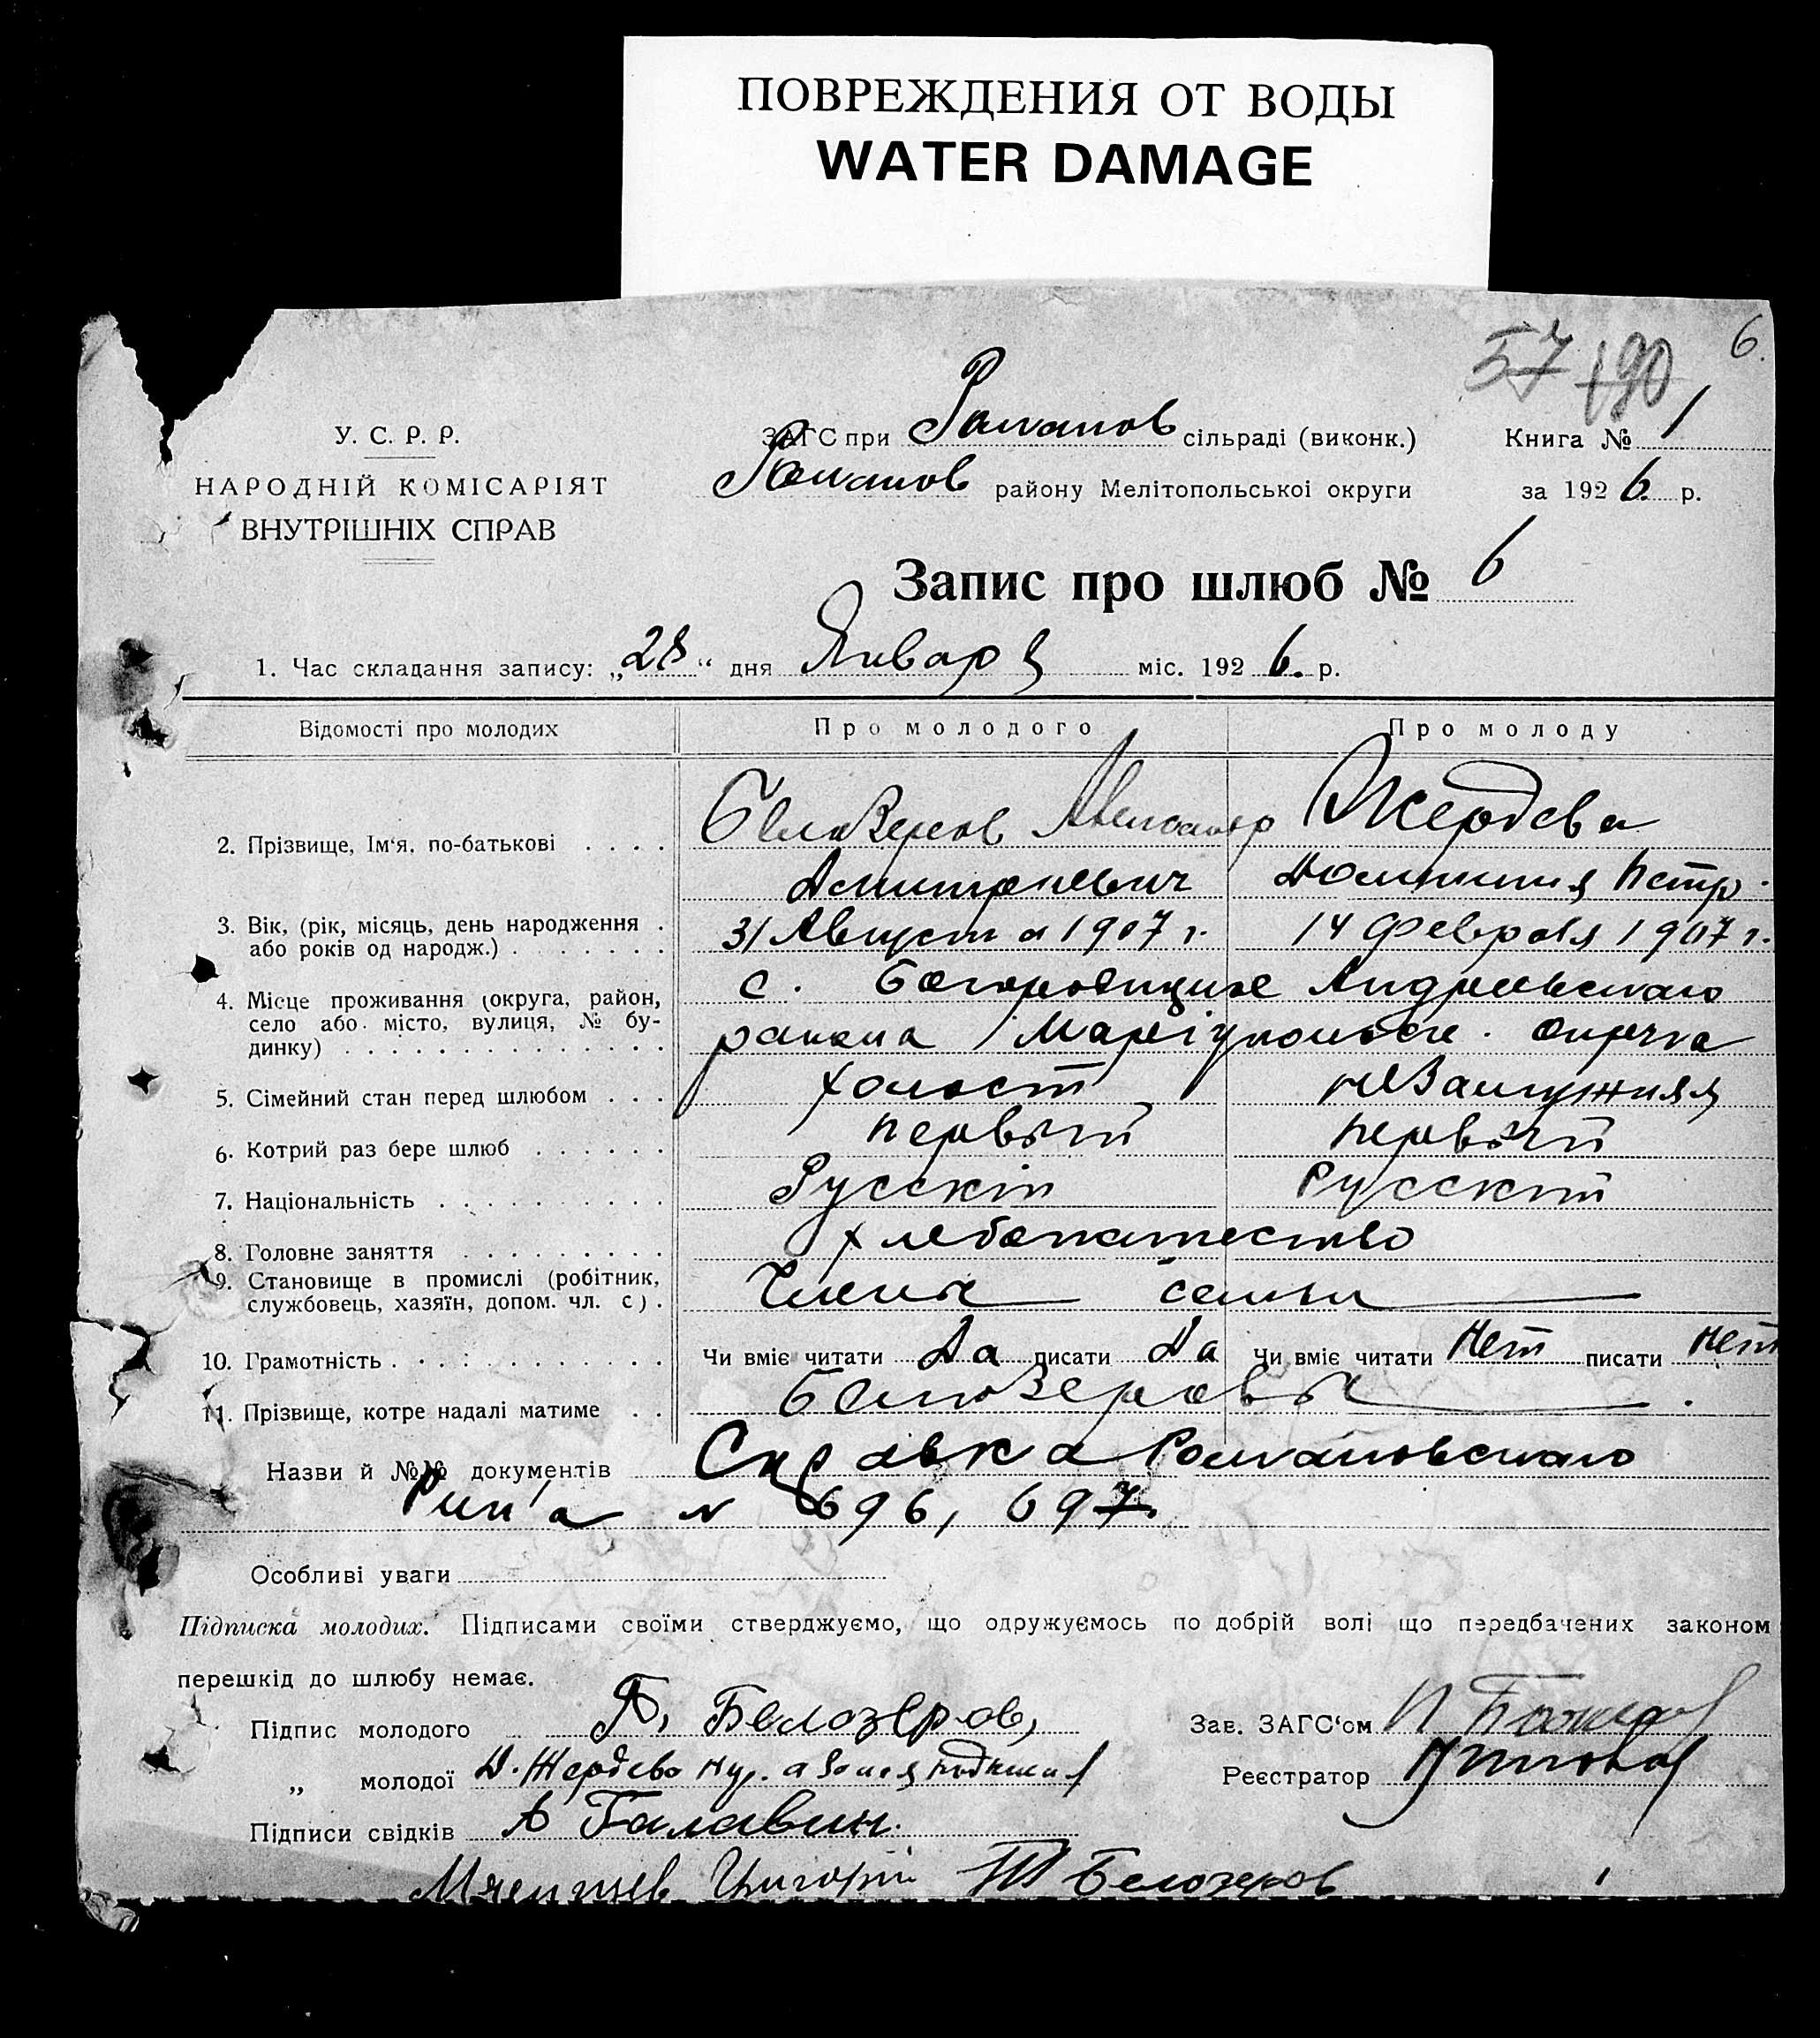 ПОВРЕЖДЕНИЯ ОТ ВОДЫ
WATER DAMAGE
6.
57 190
У. С. Р. Р.
НАРОДНІЙ КОМІСАРІЯТ
ВНУТРІШНІХ СПРАВ
ЗАГС при Романов сільраді (виконк.)
Романов району Мелітопольської округи
Книга № 1
за 1926. р.
Запис про шлюб № 6
1. Час складання запису: „28“ дня Января міс. 1926. р.
Відомості про молодих Про молодого Про молоду
2. Прізвище, Ім‘я, по-батькові Белозеров Александр Жердева
Дмитриевич Домникия Петр.
3. Вік, (рік, місяць, день народження або років од народж.) 31 Августа 1907 г. 14 Февраля 1907 г.
4. Місце проживання (округа, район, с. Богородицкое Андреевскаго
село або місто, вулиця, № бу-
динку) раиона Мариупольск. округа
5. Сімейний стан перед шлюбом холост незамужняя
6. Котрий раз бере шлюб первый первый
7. Національність Русскій Русскій
8. Головне заняття хлебопашество
9. Становище в промислі (робітник,
службовець, хазяїн, допом. чл. с). Члены семьи
10. Грамотність Чи вміє читати Да писати Да Чи вміє читати Нет писати Нет
11. Прізвище, котре надалі матиме Белозеровы.
Назви й №№ документів Справка Романовскаго
Рик'а № 696, 697.
Особливі уваги
Підписка молодих. Підписами своїми стверджуємо, що одружуємось по добрій волі що передбачених законом
перешкід до шлюбу немає.
Підпис молодого А. Белозеров,
Зав. ЗАГС‘ом
„ молодої Д. Жердева
Реєстратор
Підписи свідків А Балавин.
Григорій Белозеров